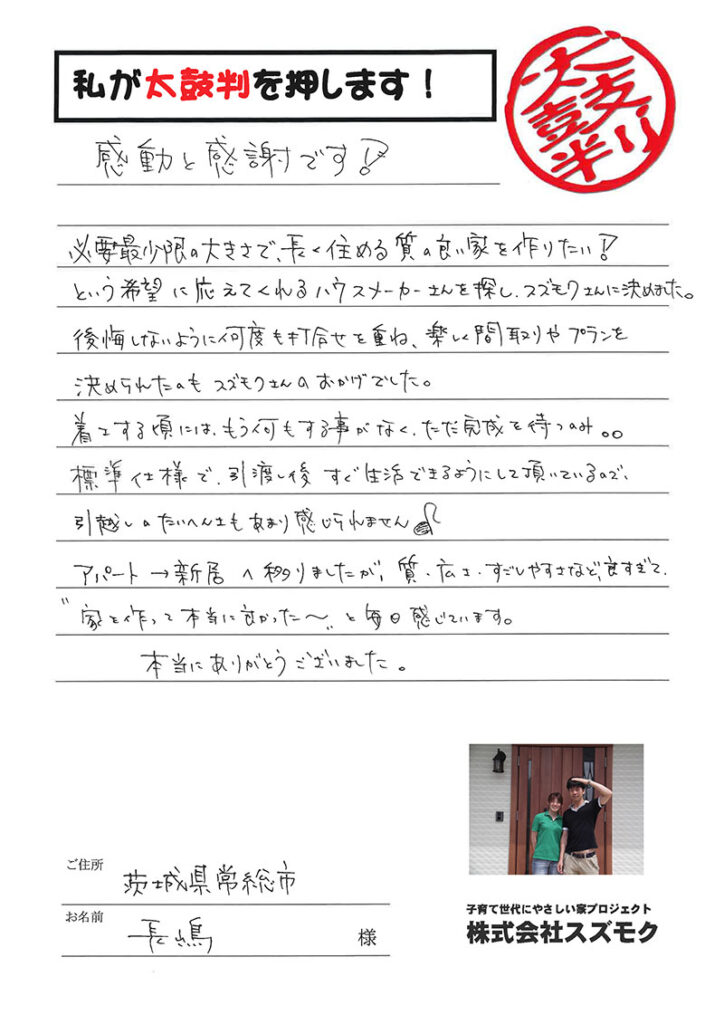 私が太鼓判を押します！
太鼓判
感動と感謝です!
必要最少限の大きさで、長く住める質の良い家を作りたい!
という希望に応えてくれるハウスメーカーさんを探し、スズモクさんに決めました。
後悔しないように何度も打合せを重ね、楽しく間取りやプランを
決められたのもスズモクさんのおかげでした。
着工する頃には、もう何もする事がなく、ただ完成を待つのみ。。
標準仕様で、引渡し後すぐ生活できるようにして頂いているので、
引越しのたいへんさもあまり感じられません♪
アパート→新居へ移りましたが、質・広さ・すごしやすさなど、良すぎて、
“家を作って本当に良かった〜”と毎日感じています。
本当にありがとうございました。
ご住所 茨城県常総市
お名前 長嶋 様
子育て世代にやさしい家プロジェクト
株式会社スズモク